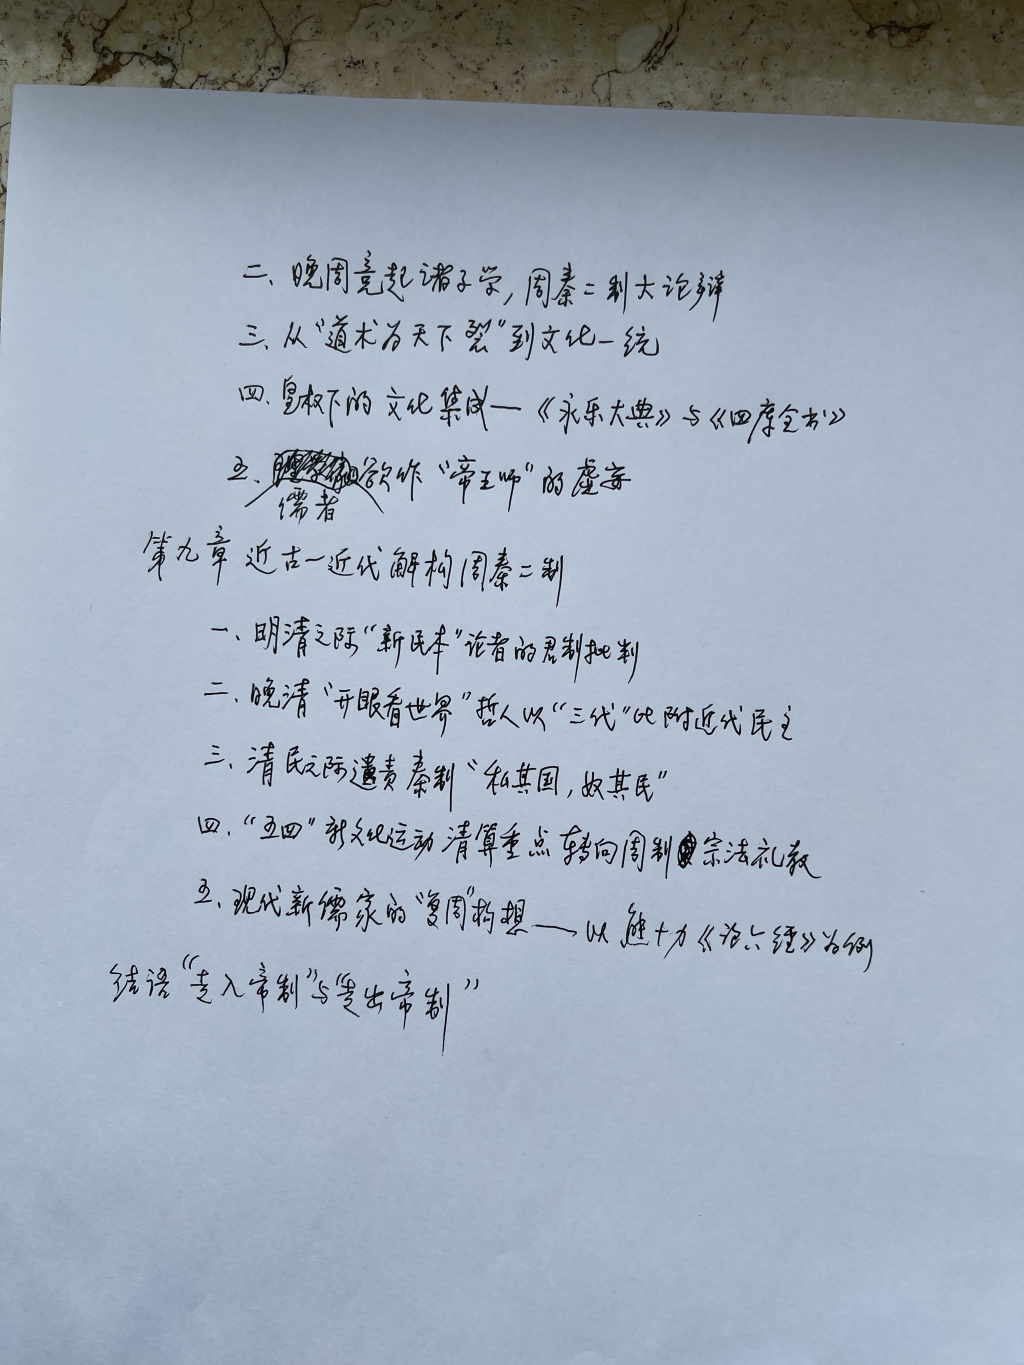 二、晚周竞起诸子学，周秦二制大论辩
三、从“道术为天下裂”到文化一统
四、皇权下的文化集成—《永乐大典》与《四库全书》
五、儒者欲作“帝王师”的虚妄
第九章 近古—近代解构周秦二制
一、明清之际“新民本”论者的君制批判
二、晚清“开眼看世界”哲人以“三代”比附近代民主
三、清民之际谴责秦制“私其国，奴其民”
四、“五四”新文化运动清算重点转向周制宗法礼教
五、现代新儒家的“复周”构想——以熊十力《论六经》为例
结语“走入帝制”与“走出帝制”